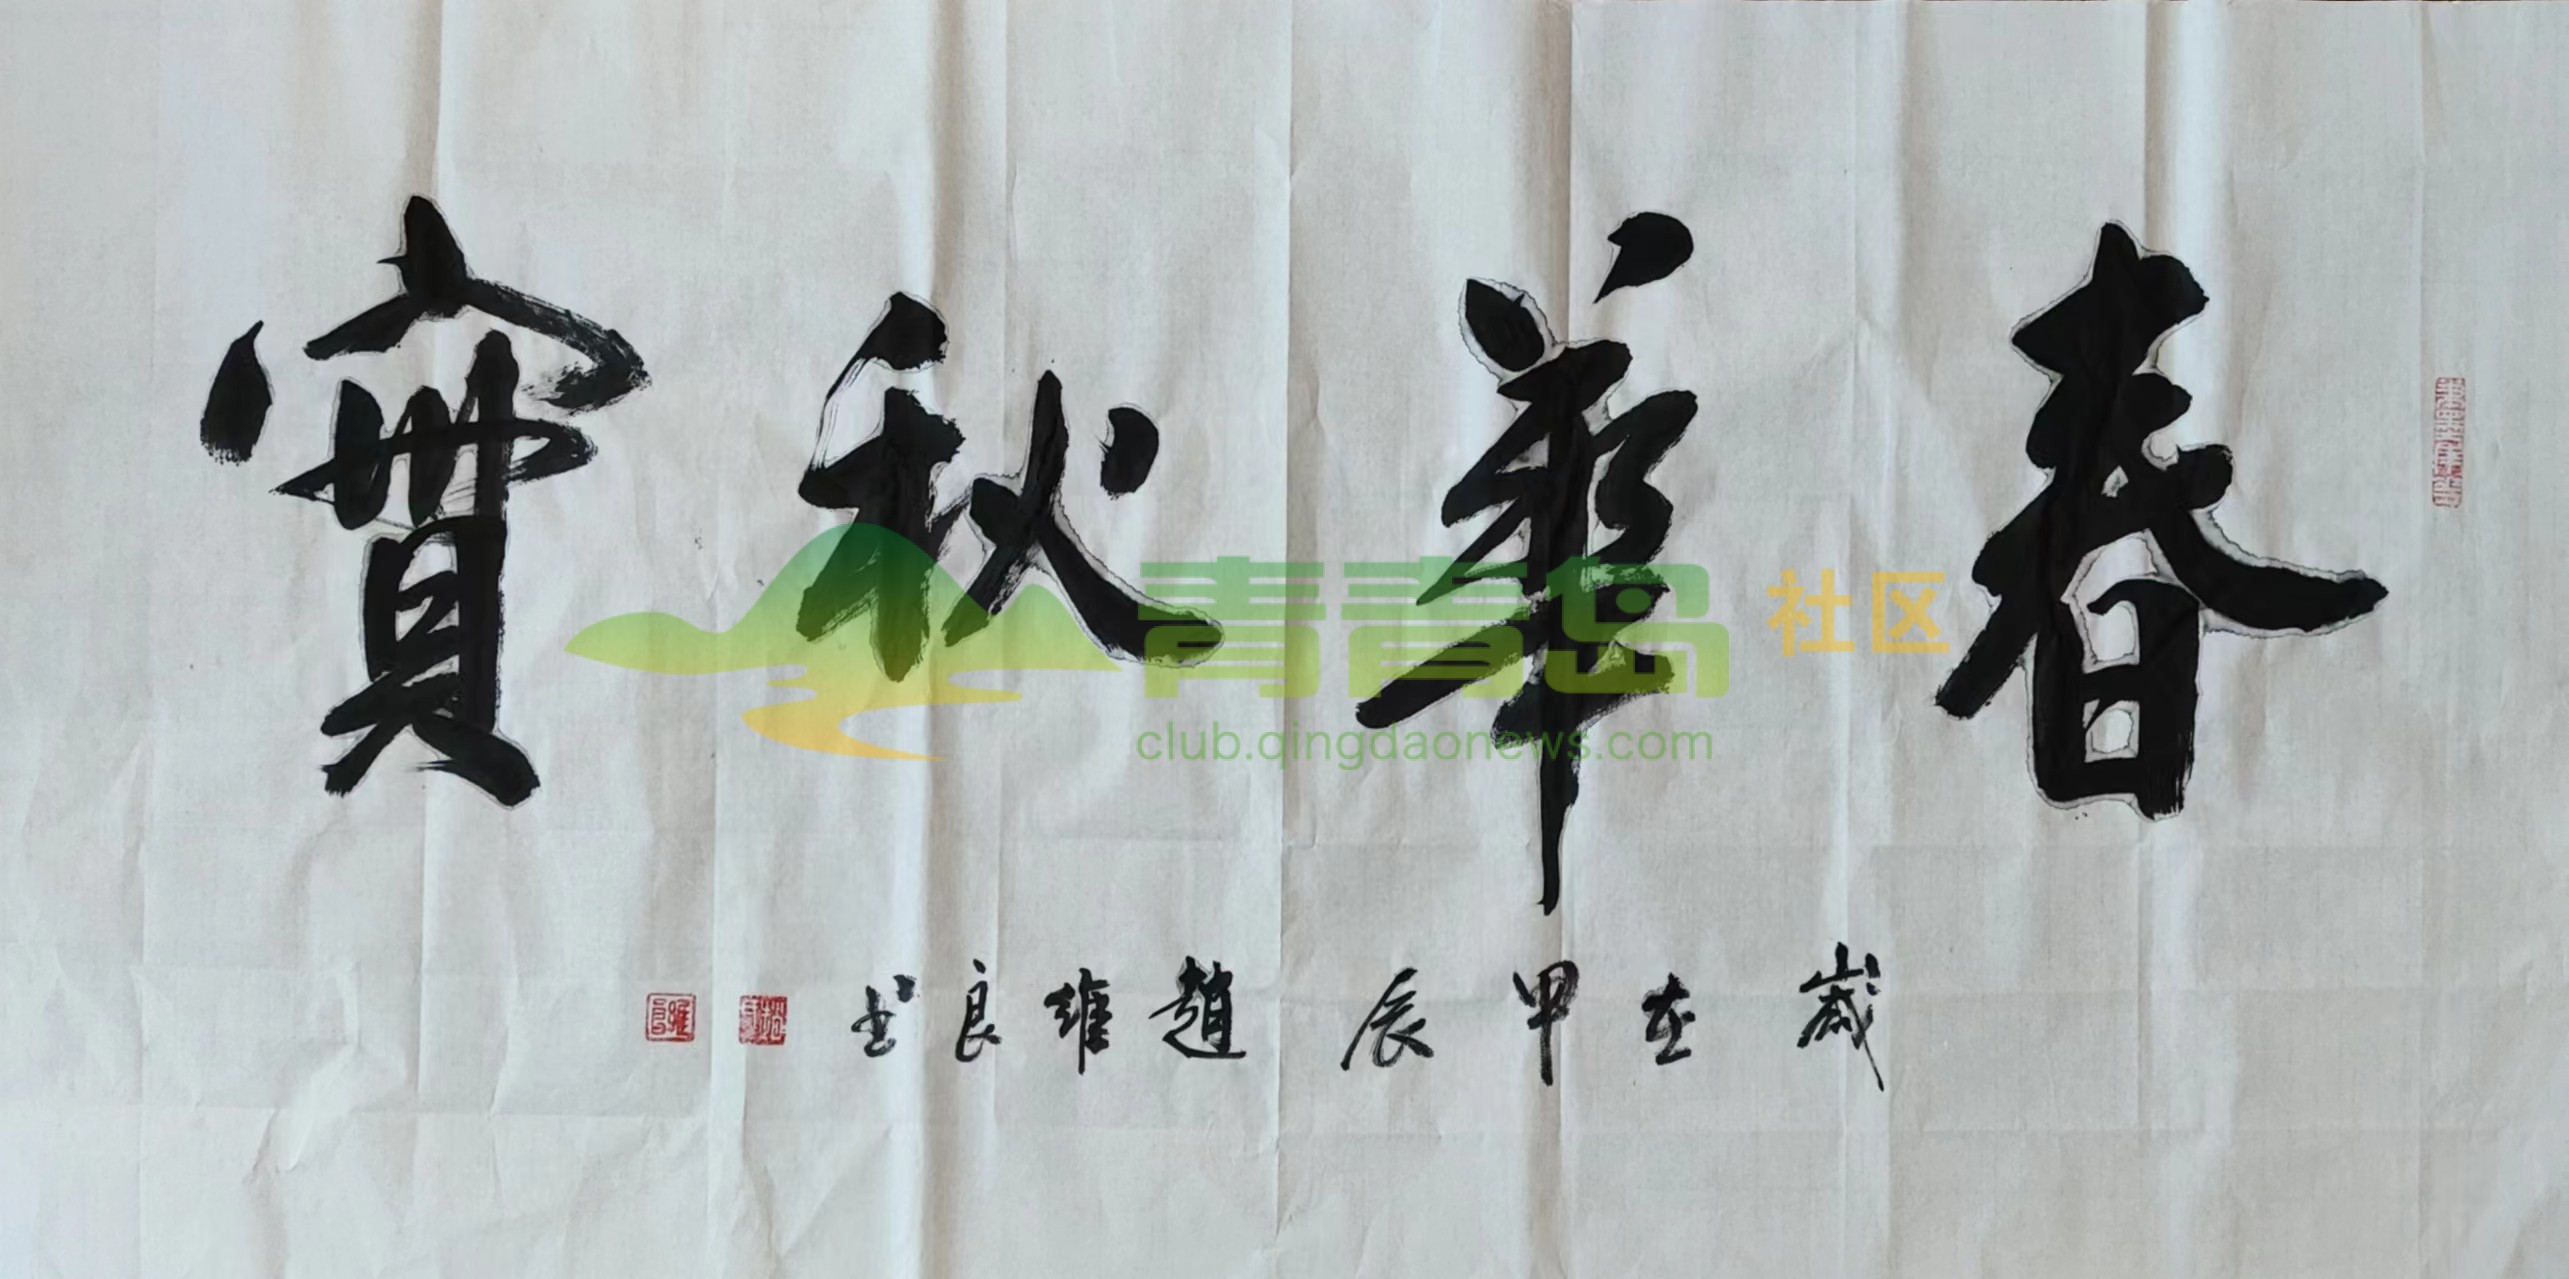 春華秋實
歲在甲辰 趙維良书
青青岛 社区
club.qingdaonews.com